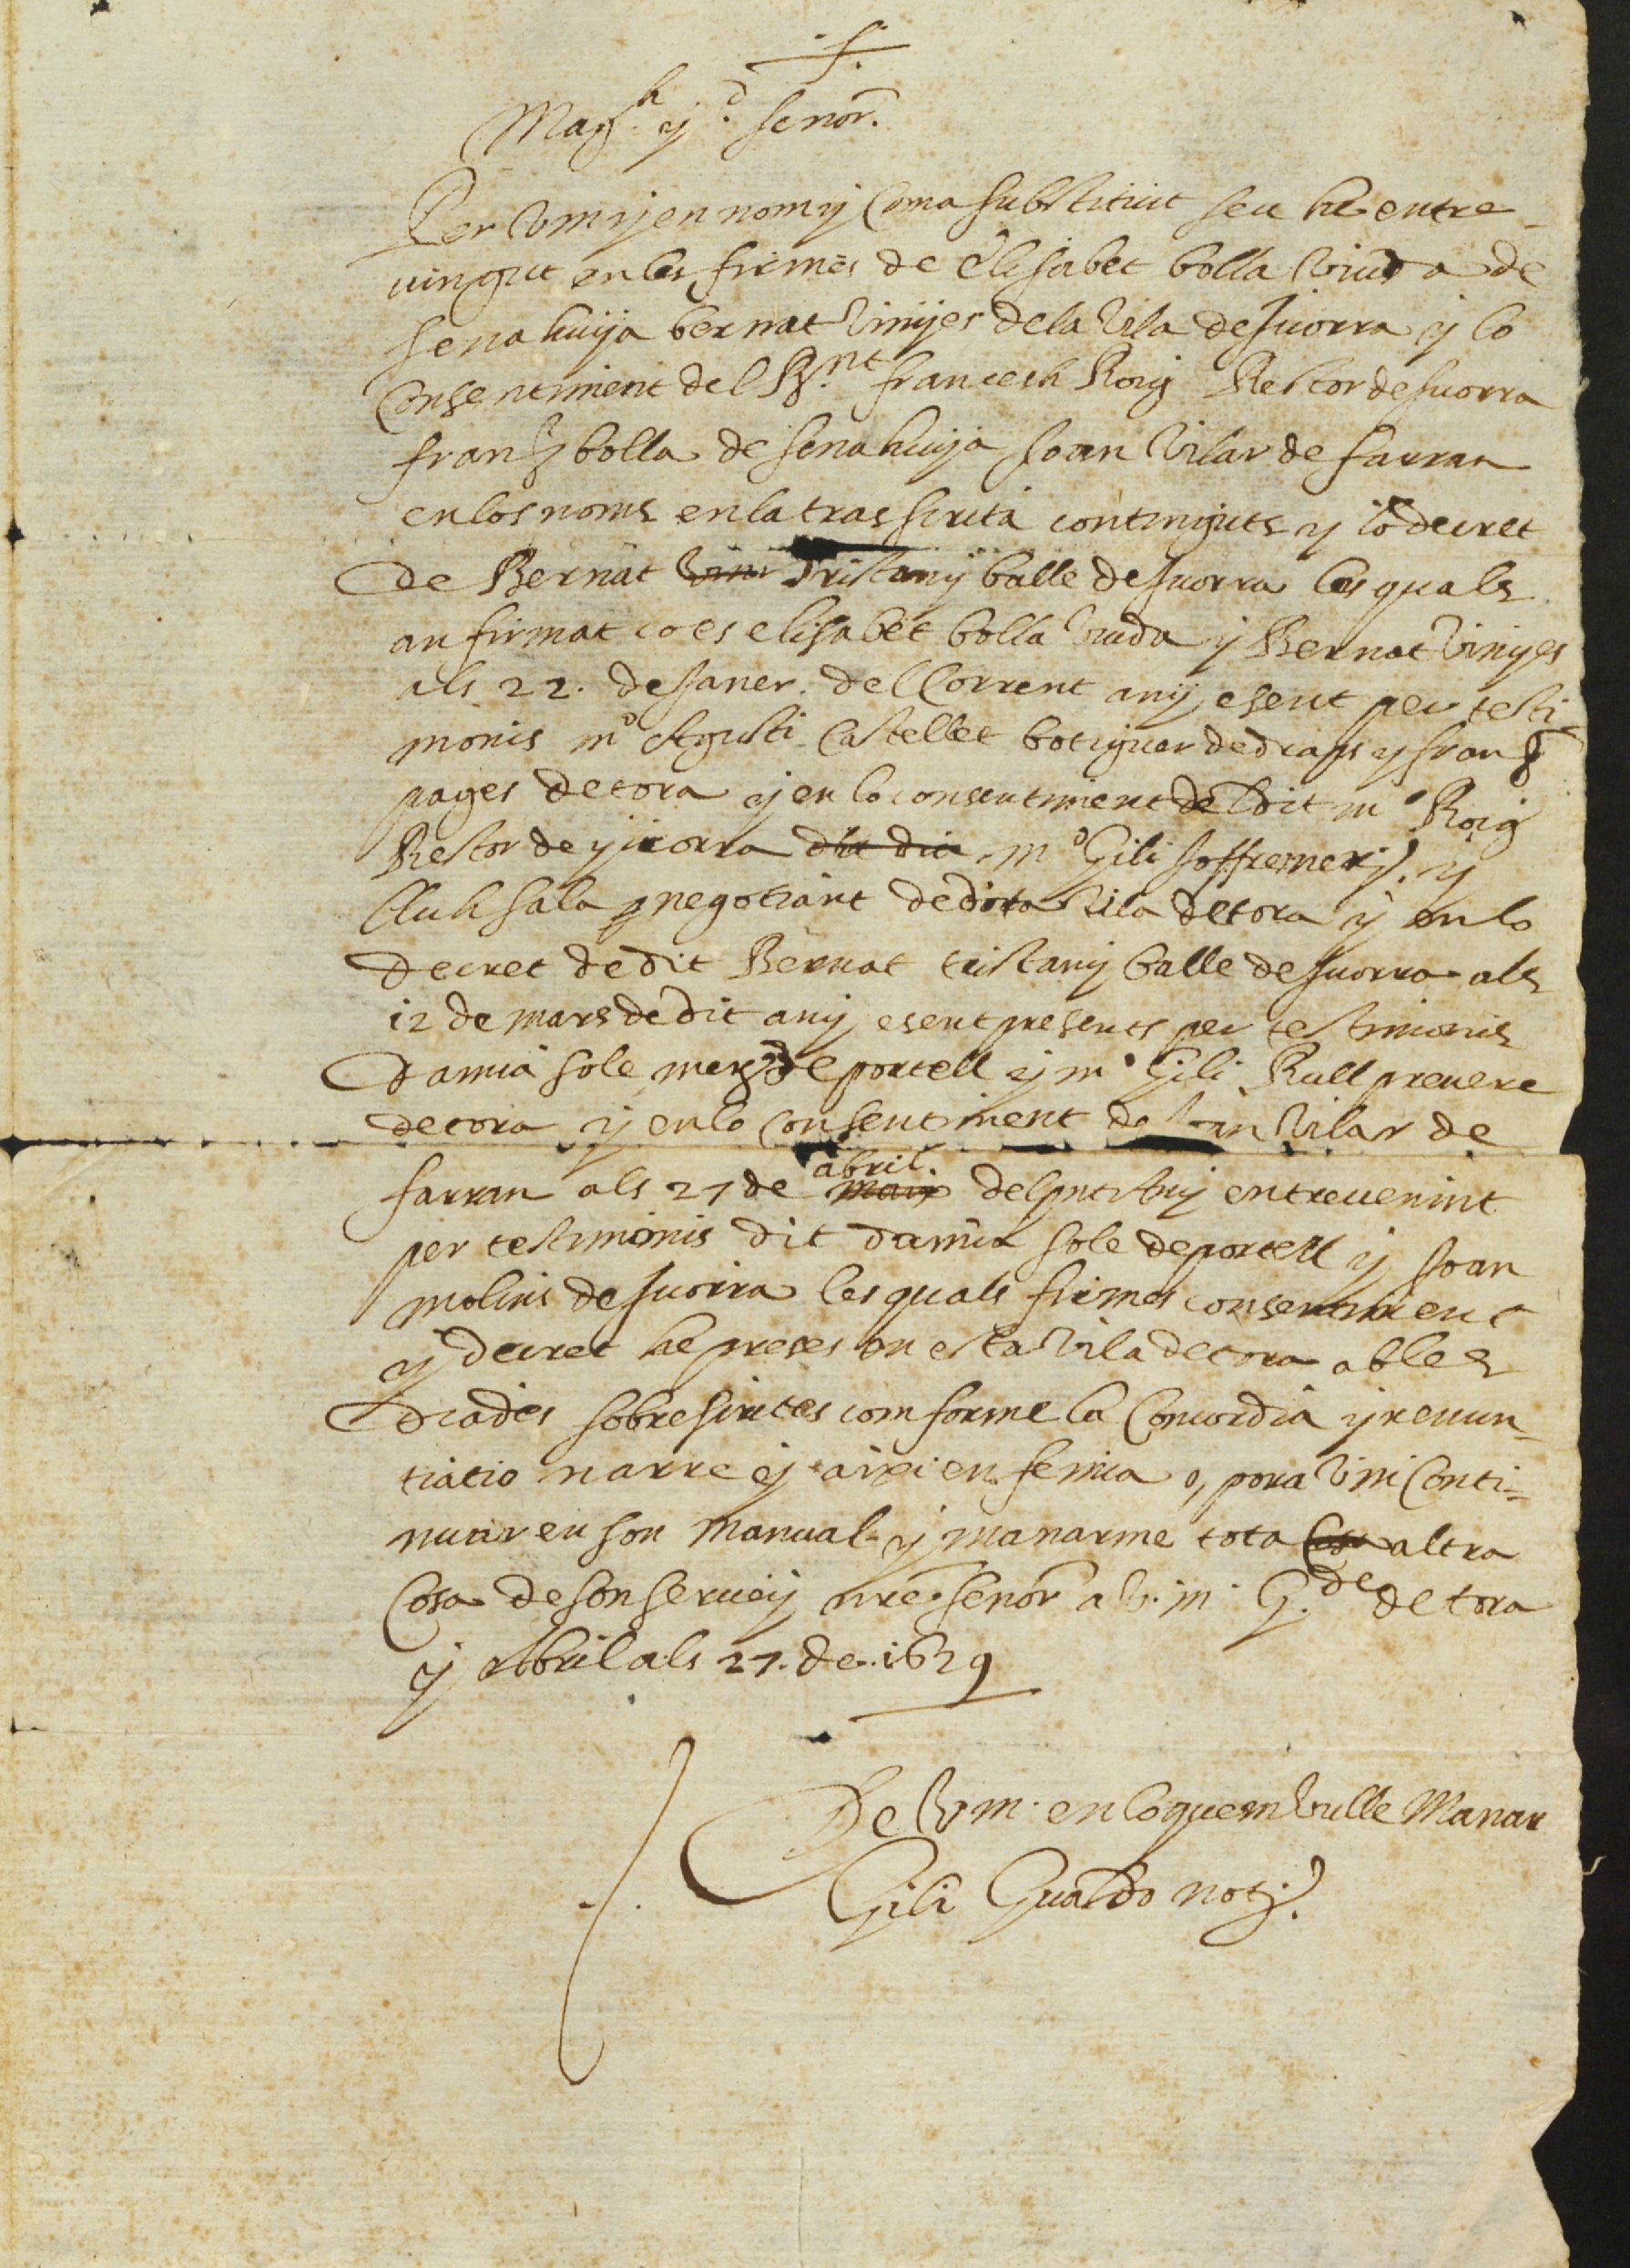 Magch. y d. senor.
Per v m y en nom y Coma substituit seu he entre-
uingut en les firmes de Elisabet bolla viuda de
senahuija bernat vinyes de la vila de Juorra y lo
Consentiment del Rnt. francesh Roig Rector de Juorra
fransh bolla de senahuija Joan vilar de farran
en los noms en la trasscrita continguts y lo decret
de Bernat Tristany balle de Juorra los quals
an firmat co es elisabet bolla viuda y Bernat vinyes
als 22. de Janer. del Corrent any, esent per testi-
monis mo Agusti Castellet botiguer de draps y
pages de tora y en lo consentiment del dit mo Roig
Rector de yuorra dit dia, mo Gili Joffre y
lluh sala negotiant de dita vila de tora y en lo
decret de dit Bernat tristany balle de Juorra als
12 de mars de dit any, esent presents per testimonis
damia sole de portell y mo Gili Rull preuere
de tora y en lo Consentiment de Joan vilar de
farran als 27 de abril. del pnt Any entreuenint
per testimonis dit damia sole de portell y Joan
molins de Juorra les quals firmes consentiment
y decret he preses en esta vila de tora ab les
diades sobrescrites comforme la Concordia y renun-
tiatio narre y aixi en femia o, pora vm Conti-
nuar en son manual y manarme tota Cosa altra
Cosa de son seruey nre. senor a v. m. G.de de tora
y Abril als 27. de. 1629
De V m. en lo quem vulle Manar
Gili Gualdo not.